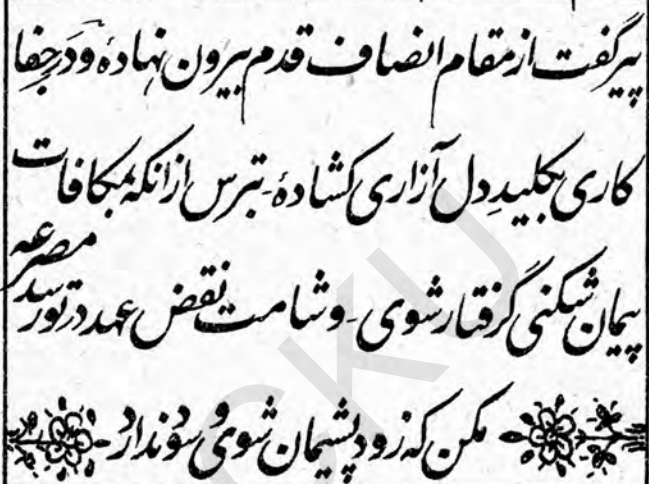 پیر گفت از مقام انصاف قدم بیرون نهادهٔ و در جفا
کاری بکلید دل آزاری کشادهٔ۔ بترس ازانکه بمکافات
پیمان شکنی گرفتار شوی۔ و شامت نقض عهد در تو رسد مصرعه
مکن که زود پشیمان شوی و سود ندارد
ACKU